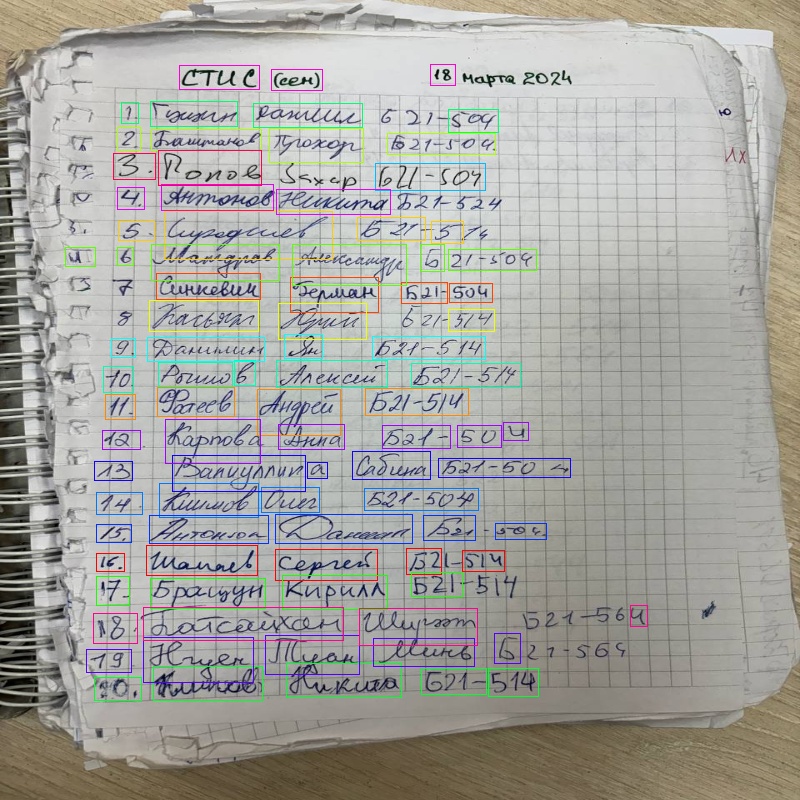 СТИС (сем) 18 марта 2024
1. Даниил Б21-504
2. Баштанов Прохор Б21-504.
3. Попов Захар Б21-504
4. Антонов Никита Б21-524
5. Б21-514
6 Александр Б21-504
7 Синкевич Герман Б21-504
8 Касьян Юрий Б21-514
9. Данилин Ян Б21-514
10. Рыжов Алексей Б21-514
11. Фатеев Андрей Б21-514
12. Карпова Анна Б21-504
13 Валиуллина Сабина Б21-504
14. Климов Олег Б21-504
15. Б21-504.
16. Шалаев Сергей Б21-514
17. Кирилл Б21-514
18. Батсайхан Б21-564
19 Нгуен Туан Минь Б21-564
20. Никита Б21-514